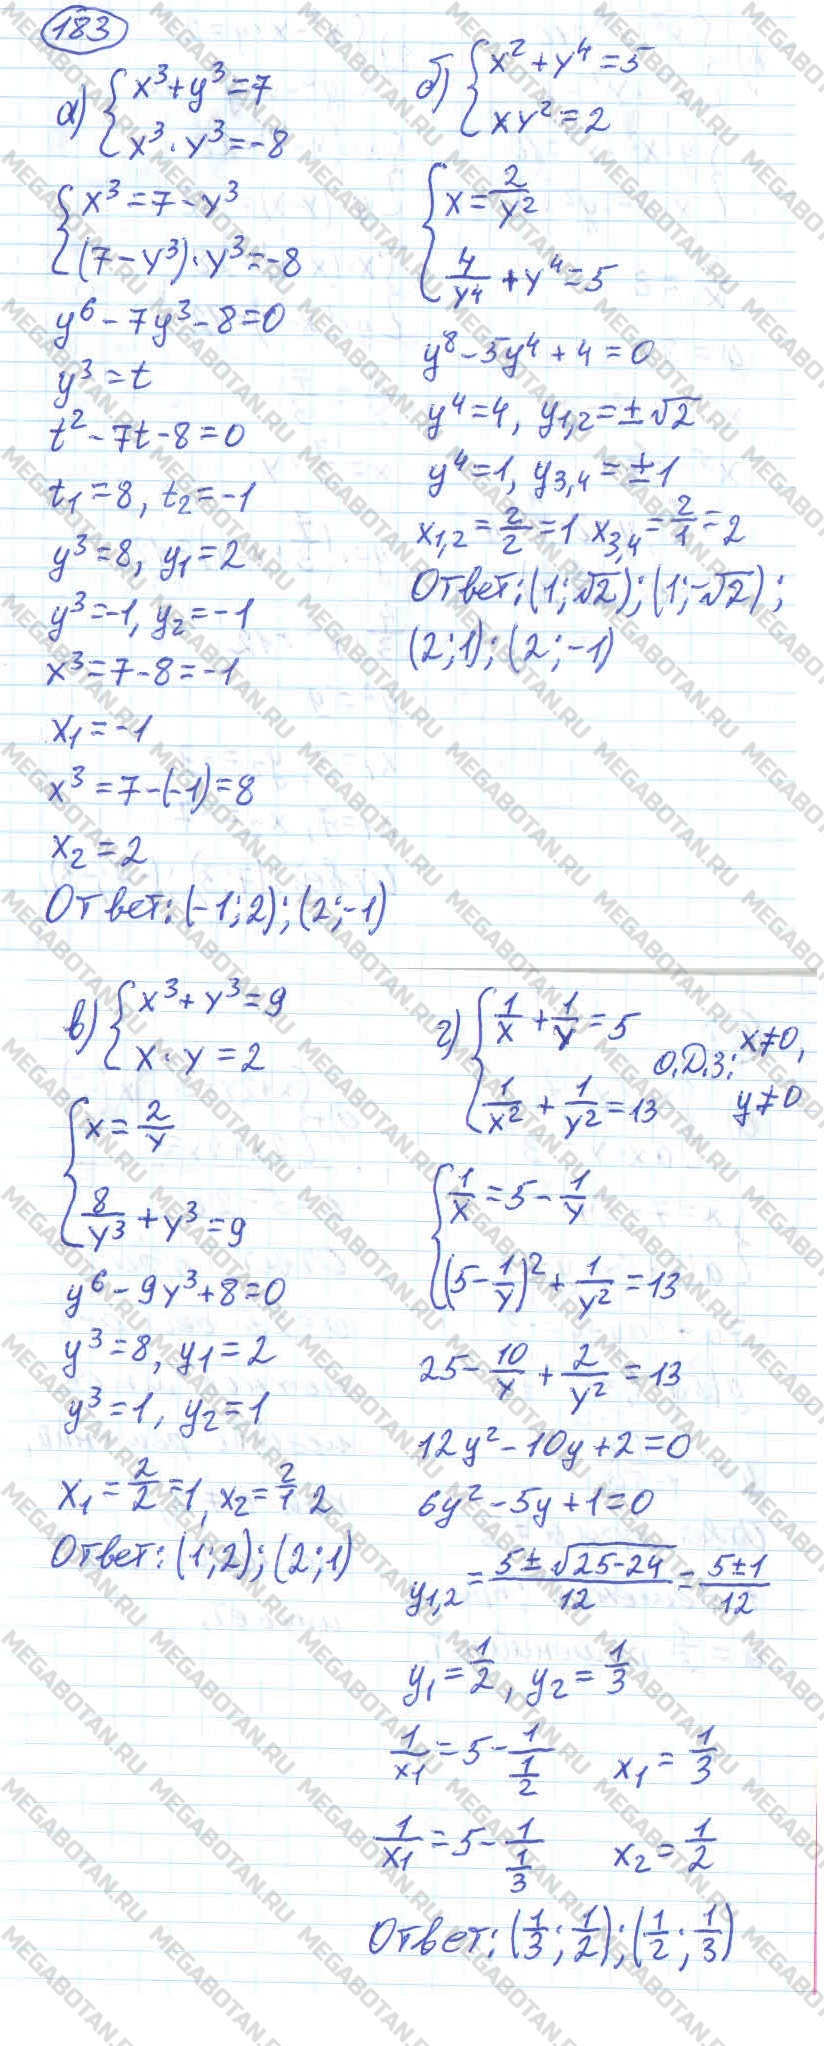 183
а) { x³+y³=7
x³·y³=-8
{ x³=7-y³
(7-y³)·y³=-8
y⁶-7y³-8=0
y³=t
t²-7t-8=0
t₁=8, t₂=-1
y³=8, y₁=2
y³=-1, y₂=-1
x³=7-8=-1
x₁=-1
x³=7-(-1)=8
x₂=2
Ответ: (-1;2); (2;-1)
б) { x²+y⁴=5
xy²=2
{ x=2/y²
4/y⁴+y⁴=5
y⁸-5y⁴+4=0
y⁴=4, y₁,₂=±√2
y⁴=1, y₃,₄=±1
x₁,₂=2/2=1 x₃,₄=2/1=2
Ответ: (1;√2); (1;-√2);
(2;1); (2;-1)
в) { x³+y³=9
x·y=2
{ x=2/y
8/y³+y³=9
y⁶-9y³+8=0
y³=8, y₁=2
y³=1, y₂=1
x₁=2/2=1, x₂=2/1 2
Ответ: (1;2); (2;1)
г) { 1/x+1/y=5
1/x²+1/y²=13
О.Д.З: x≠0,
y≠0
{ 1/x=5-1/y
(5-1/y)²+1/y²=13
25-10/y+2/y²=13
12y²-10y+2=0
6y²-5y+1=0
y₁,₂=(5±√(25-24))/12=(5±1)/12
y₁=1/2, y₂=1/3
1/x₁=5-1/(1/2) x₁=1/3
1/x₁=5-1/(1/3) x₂=1/2
Ответ: (1/3;1/2); (1/2;1/3)
MEGABOTAN.RU